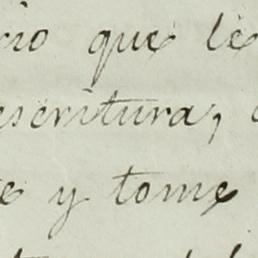 cio que le
escritura,
e y tome